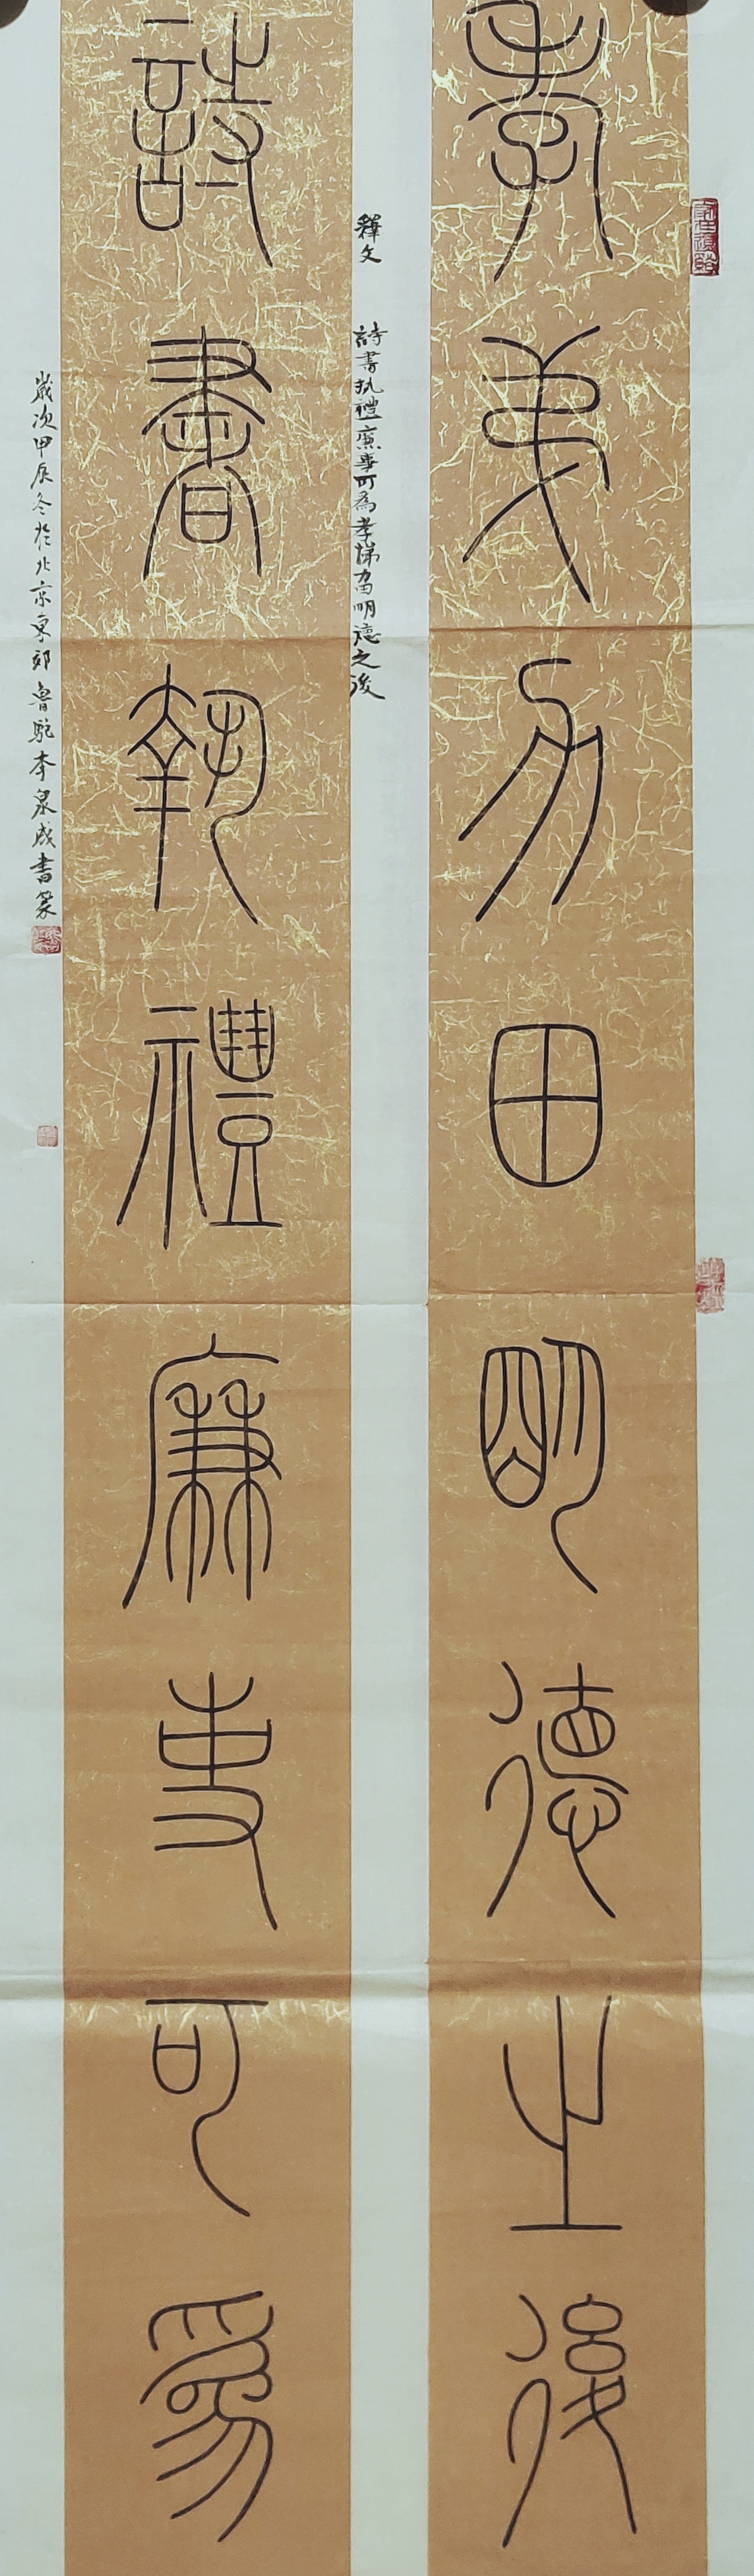 孝弟力田明德之後
釋文 詩書執禮廉事可為孝悌力田明德之後
詩書執禮廉事可為
歲次甲辰冬於北京東郊魯駝李泉成書篆